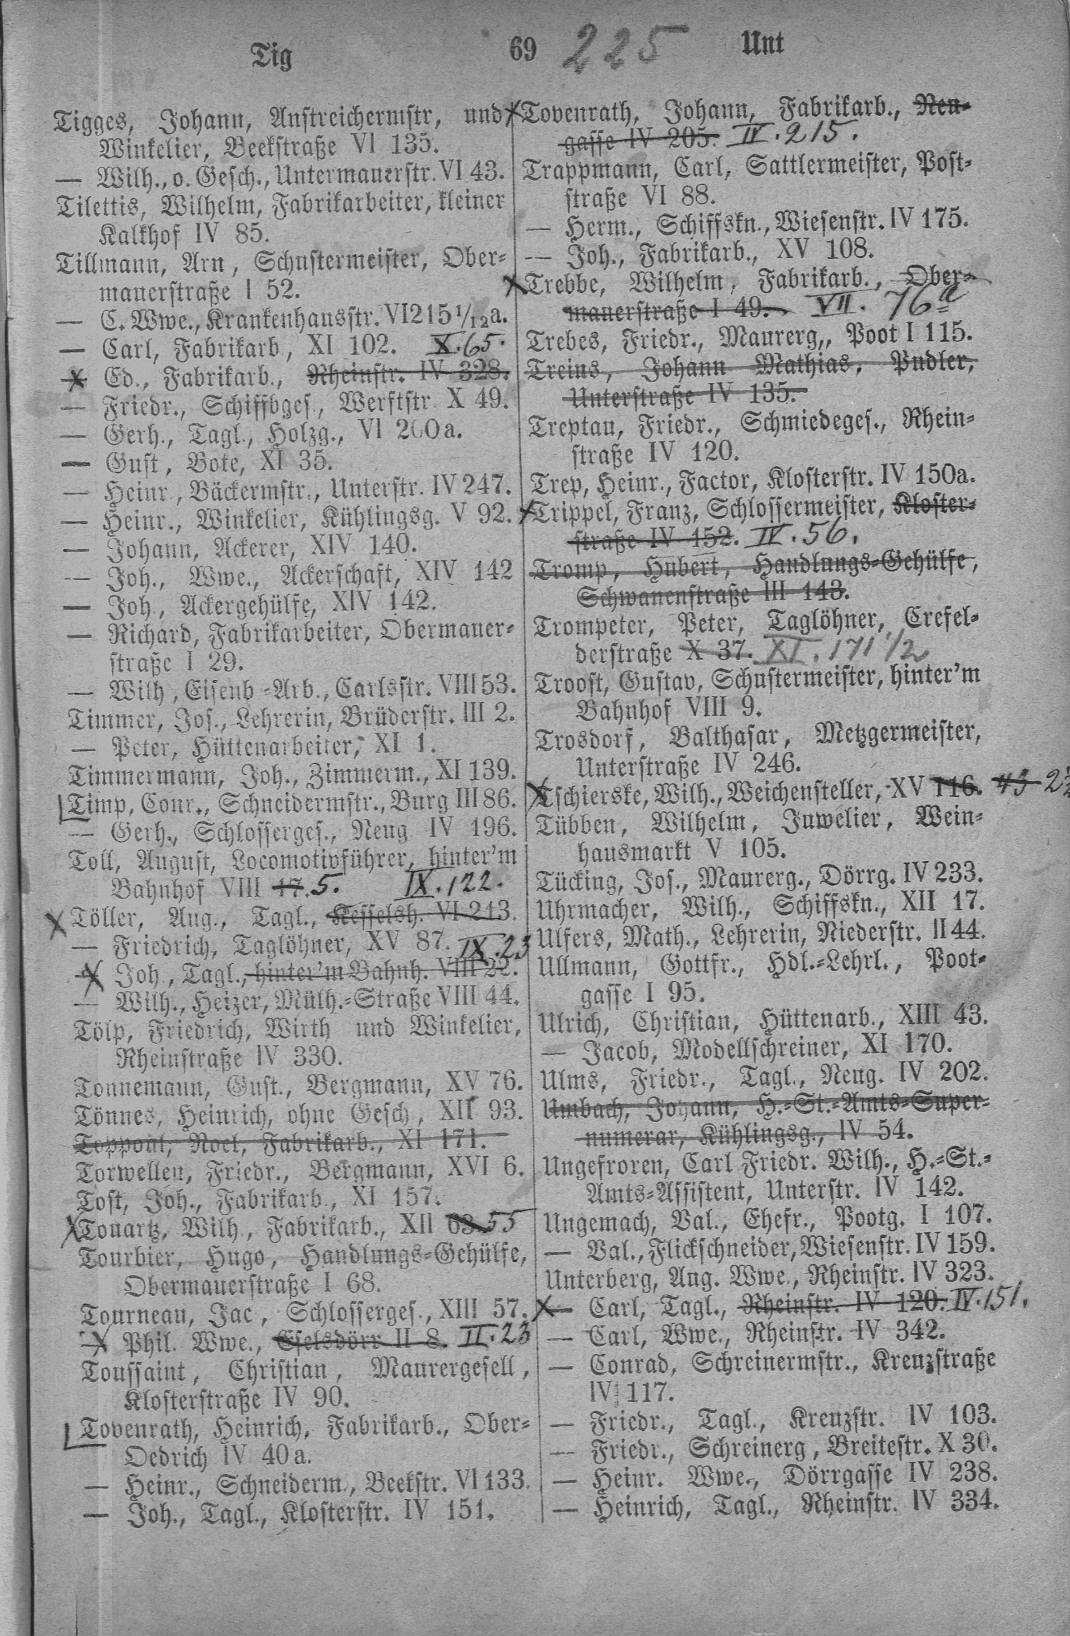 Tig 69 225 Unt
Tigges, Johann, Anstreichermstr, und
Winkelier, Beekstraße VI 135.
— Wilh., o. Gesch., Untermauerstr. VI 43.
Tilettis, Wilhelm, Fabrikarbeiter, kleiner
Kalkhof IV 85.
Tillmann, Arn, Schustermeister, Ober-
mauerstraße I 52.
— C. Wwe., Krankenhausstr. VI 215 1/12 a.
— Carl, Fabrikarb, XI 102. X. 65.
x — Ed., Fabrikarb., Rheinstr. IV 328.
— Friedr., Schiffbges., Werftstr. X 49.
— Gerh., Tagl., Holzg., VI 200a.
— Gust, Bote, XI 35.
— Heinr, Bäckermstr., Unterstr. IV 247.
— Heinr., Winkelier, Kühlingsg. V 92.
— Johann, Ackerer, XIV 140.
— Joh., Wwe., Ackerschaft, XIV 142
— Joh, Ackergehülfe, XIV 142.
— Richard, Fabrikarbeiter, Obermauer-
straße I 29.
— Wilh, Eisenb-Arb., Carlsstr. VIII 53.
Timmer, Jos., Lehrerin, Brüderstr. III 2.
— Peter, Hüttenarbeiter, XI 1.
Timmermann, Joh., Zimmerm., XI 139.
Timp, Conr., Schneidermstr., Burg III 86.
— Gerh., Schlosserges., Neug IV 196.
Toll, August, Locomotivführer, hinter'm
Bahnhof VIII 17. 5. IX. 122.
x Töller, Aug., Tagl., Kesselsh. VI 213.
— Friedrich, Taglöhner, XV 87. IX. 23
x — Joh, Tagl., hinter'm Bahnh. VIII 22.
— Wilh., Heizer, Mülh.-Straße VIII 44.
Tölp, Friedrich, Wirth und Winkelier,
Rheinstraße IV 330.
Tonnemann, Gust., Bergmann, XV 76.
Tönnes, Heinrich, ohne Gesch, XII 93.
Toppoul, Noel, Fabrikarb., XI 171.
Torwellen, Friedr., Bergmann, XVI 6.
Tost, Joh., Fabrikarb., XI 157.
x Touartz, Wilh, Fabrikarb., XII 63 55
Tourbier, Hugo, Handlungs-Gehülfe,
Obermauerstraße I 68.
Tourneau, Jac, Schlosserges., XIII 57.
x — Phil. Wwe., Eselsdörr II 8. II. 23
Toussaint, Christian, Maurergesell,
Klosterstraße IV 90.
Tovenrath, Heinrich, Fabrikarb., Ober-
Oedrich IV 40a.
— Heinr., Schneiderm., Beekstr. VI 133.
— Joh., Tagl., Klosterstr. IV 151.
x Tovenrath, Johann, Fabrikarb., Neu-
gasse IV 205. IV. 215.
Trappmann, Carl, Sattlermeister, Post-
straße VI 88.
— Herm., Schiffskn., Wiesenstr. IV 175.
— Joh., Fabrikarb., XV 108.
x Trebbe, Wilhelm, Fabrikarb., Ober-
mauerstraße I 49. VII. 76a
Trebes, Friedr., Maurerg., Poot I 115.
Treins, Johann Mathias, Pudler,
Unterstraße IV 135.
Treptau, Friedr., Schmiedeges., Rhein-
straße IV 120.
Trep, Heinr., Factor, Klosterstr. IV 150a.
x Trippel, Franz, Schlossermeister, Kloster-
straße IV 152. IV. 56.
Tromp, Hubert, Handlungs-Gehülfe,
Schwanenstraße III 143.
Trompeter, Peter, Taglöhner, Crefel-
derstraße X 37. XI. 171 1/2
Troost, Gustav, Schustermeister, hinter'm
Bahnhof VIII 9.
Trosdorf, Balthasar, Metzgermeister,
Unterstraße IV 246.
x Tschierske, Wilh., Weichensteller, XV 116. 43
Tübben, Wilhelm, Juwelier, Wein-
hausmarkt V 105.
Tücking, Jos., Maurerg., Dörrg. IV 233.
Uhrmacher, Wilh., Schiffskn., XII 17.
Ulfers, Math., Lehrerin, Niederstr. II 44.
Ullmann, Gottfr., Hdl.-Lehrl., Poot-
gasse I 95.
Ulrich, Christian, Hüttenarb., XIII 43.
— Jacob, Modellschreiner, XI 170.
Ulms, Friedr., Tagl., Neug. IV 202.
Umbach, Johann, H.-St.-Amts-Super-
numerar, Kühlingsg., IV 54.
Ungefroren, Carl Friedr. Wilh., H.-St.-
Amts-Assistent, Unterstr. IV 142.
Ungemach, Val., Ehefr., Pootg. I 107.
— Val., Flickschneider, Wiesenstr. IV 159.
Unterberg, Aug. Wwe., Rheinstr. IV 323.
x — Carl, Tagl., Rheinstr. IV 120. IV. 151.
— Carl, Wwe., Rheinstr. IV 342.
— Conrad, Schreinermstr., Kreuzstraße
IV 117.
— Friedr., Tagl., Kreuzstr. IV 103.
— Friedr., Schreinerg, Breitestr. X 30.
— Heinr. Wwe., Dörrgasse IV 238.
— Heinrich, Tagl., Rheinstr. IV 334.